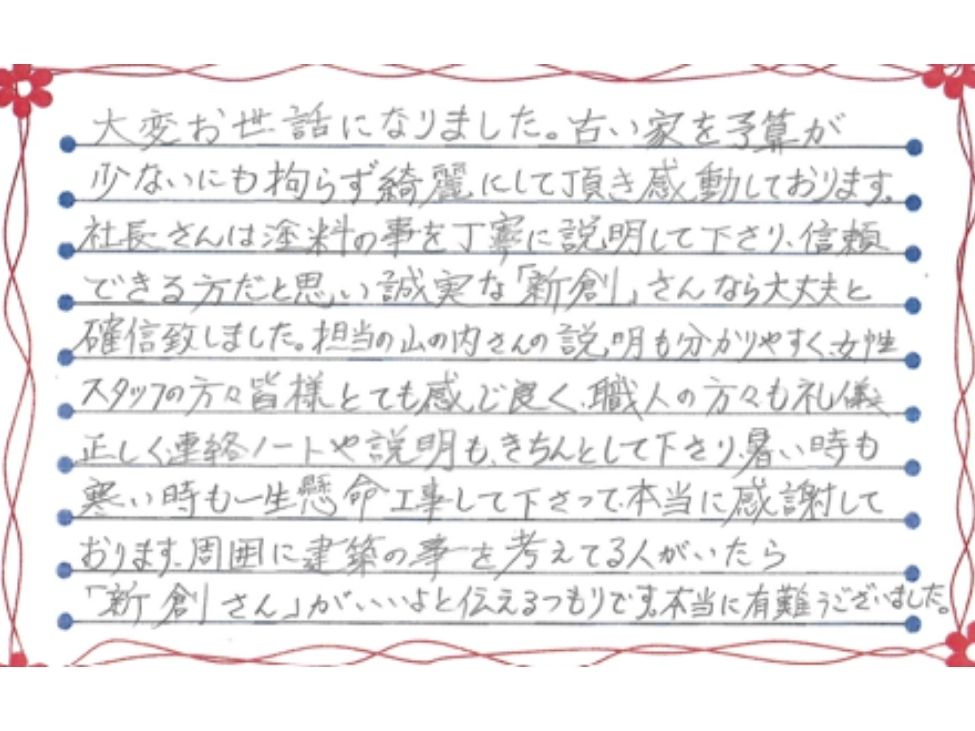 大変お世話になりました。古い家を予算が
少ないにも拘らず綺麗にして頂き感動しております。
社長さんは塗料の事を丁寧に説明して下さり、信頼
できる方だと思い誠実な「新創」さんなら大丈夫と
確信致しました。担当の山の内さんの説明も分かりやすく、女性
スタッフの方々皆様とても感じ良く、職人の方々も礼儀
正しく連絡ノートや説明も、きちんとして下さり、暑い時も
寒い時も一生懸命工事して下さって、本当に感謝して
おります。周囲に建築の事を考えてる人がいたら
「新創さん」がいいよと伝えるつもりです。本当に有難うございました。